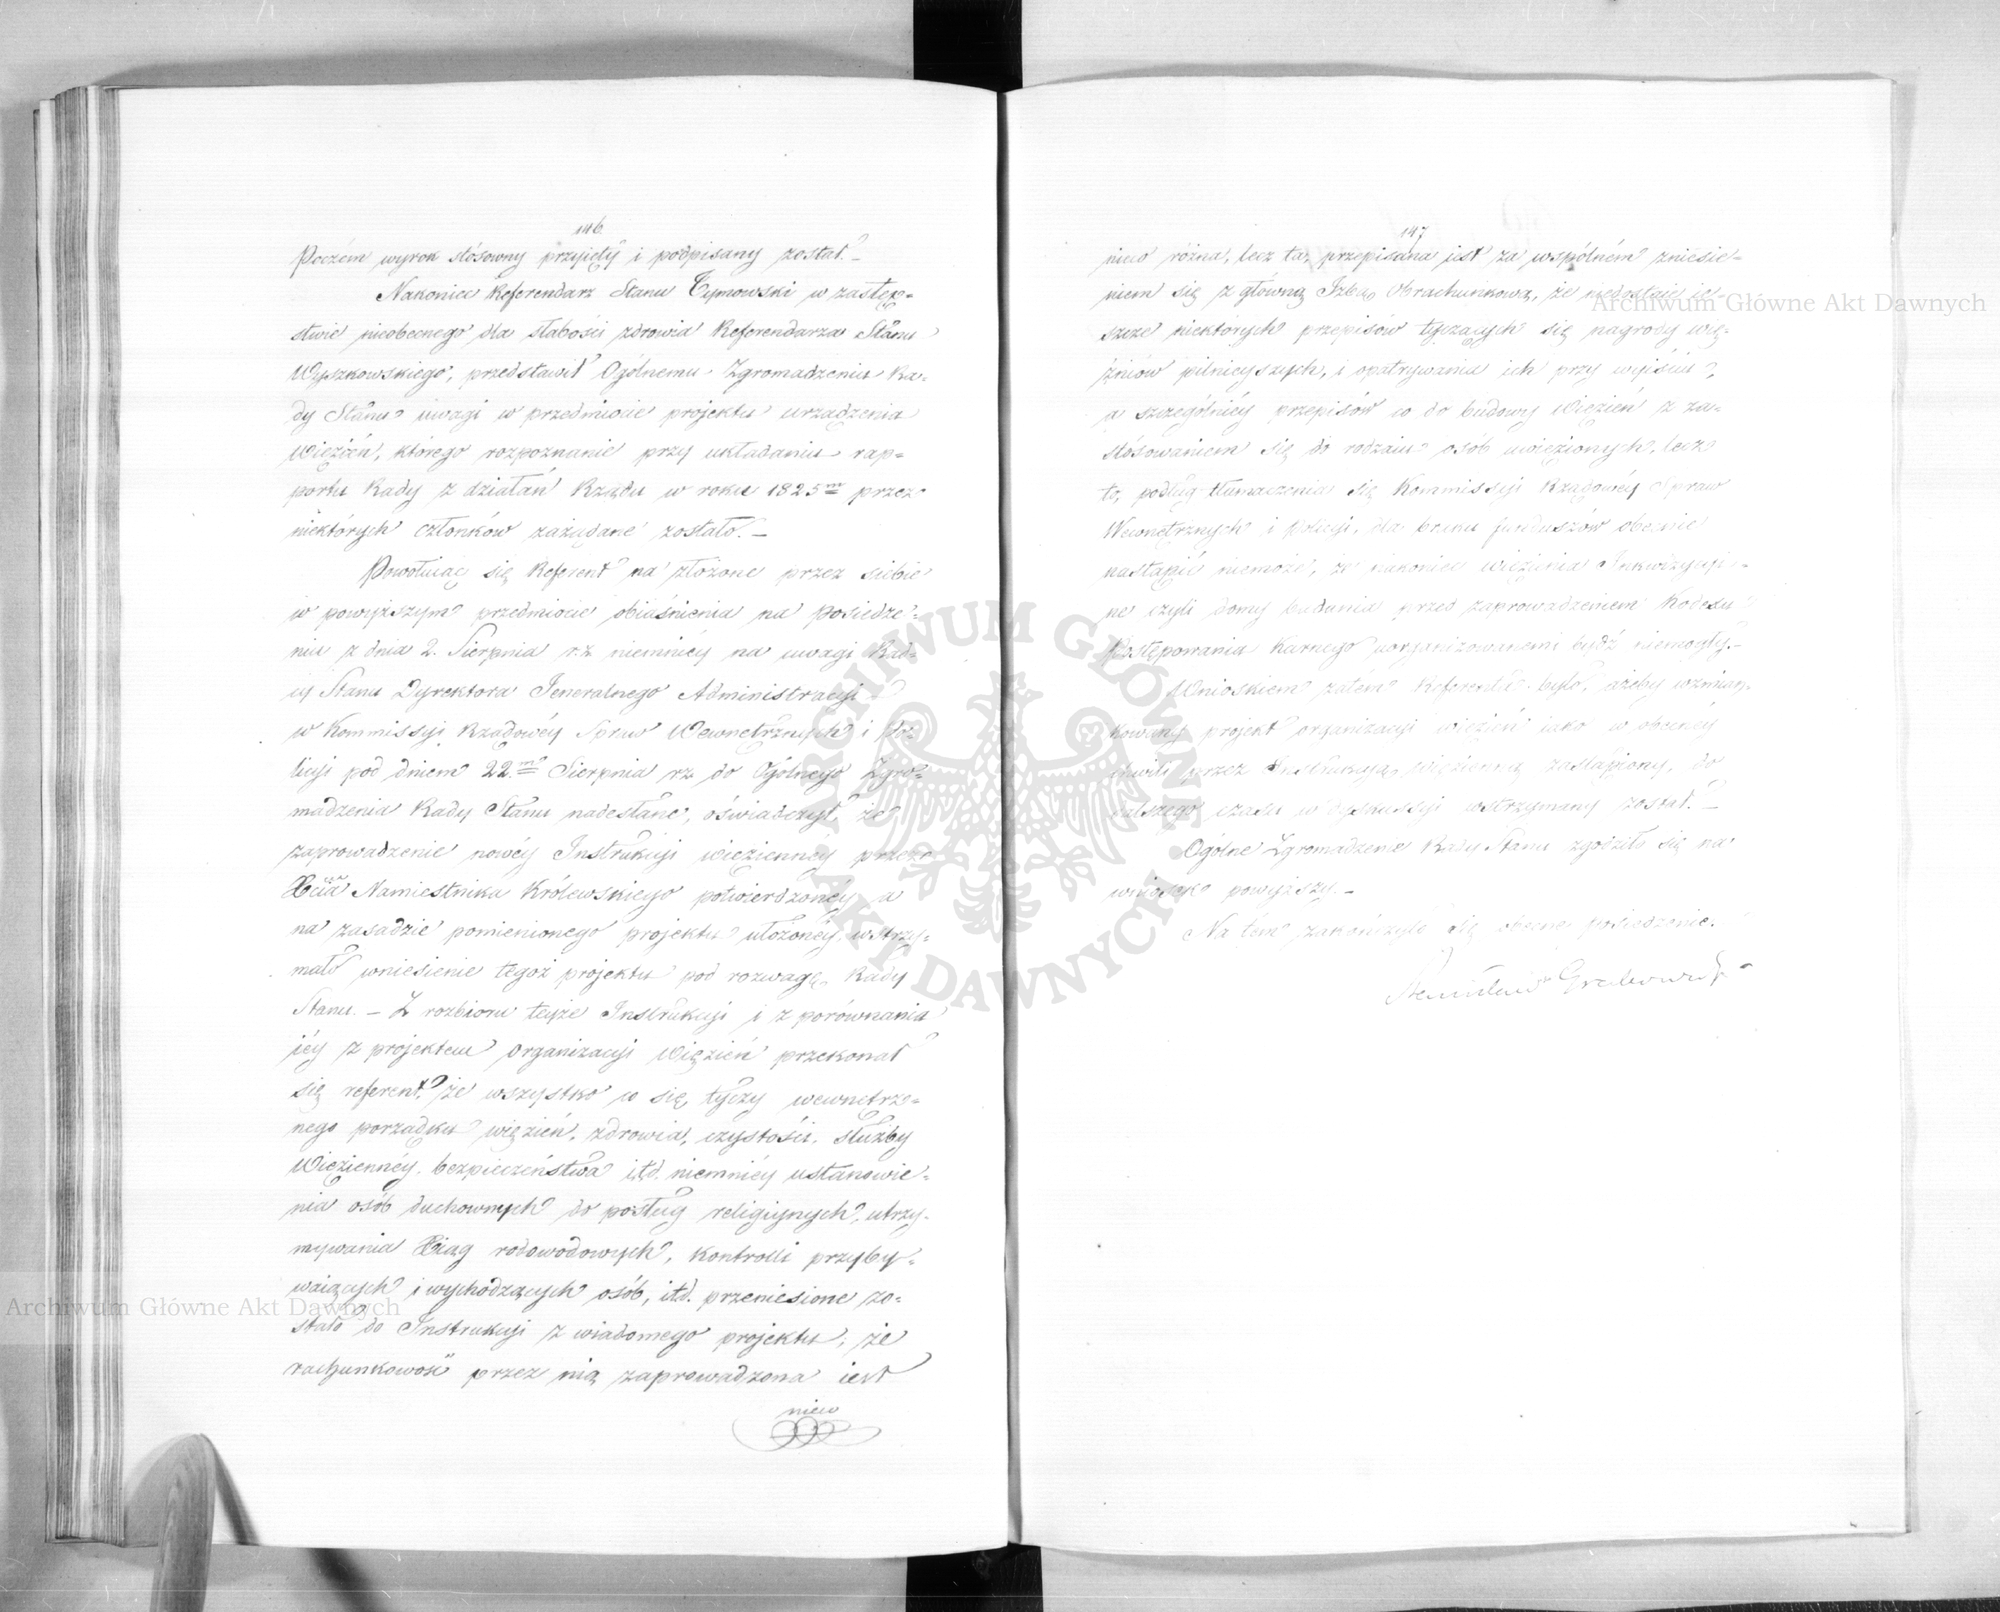 146
Poczém wyrok stósowny przyięty i podpisany został. –
Nakoniec Referendarz Stanu Tymowski w zastęp-
stwie nieobecnego dla słabości zdrowia Referendarza Stanu
Wyszkowskiego, przedstawił Ogólnemu Zgromadzeniu Ra-
dy Stanu uwagi w przedmiocie projektu urządzenia
Więzień, którego rozpoznanie przy układaniu rap-
portu Rady z działań Rządu w roku 1825m przez
niektórych członków zażądane zostało. –
Powołuiąc się Referent na złożone przez siebie
w powyższym przedmiocie obiaśnienia na Posiedze-
niu z dnia 2. Sierpnia r.z. niemniéy na uwagi Rad-
cy Stanu Dyrektora Jeneralnego Administracyi
w Kommissyi Rządowéy Spraw Wewnętrznych i Po-
licyi pod dniem 22m Sierpnia rz do Ogólnego Zgro-
madzenia Rady Stanu nadesłane, oświadczył, że
zaprowadzenie nowéy Instrukcyi więziennéy przez
Xcia Namiestnika Królewskiego potwierdzonéy a
na zasadzie pomienionego projektu ułożonéy, wstrzy-
mało wniesienie tegoż projektu pod rozwagę Rady
Stanu. – Z rozbioru teyże Instrukcyi i z porównania
iéy z projektem organizacyi więzień przekonał
się referent, że wszystko co się tyczy wewnętrz-
nego porządku więzień, zdrowia, czystości, służby
Więziennéy, bezpieczeństwa itd. niemniéy ustanowie-
nia osób duchownych do posług religiynych, utrzy-
mywania Xiąg rodowodowych, kontrolli przyby-
waiących i wychodzących osób, itd. przeniesione zo-
stało do Instrukcyi z wiadomego projektu, że
rachunkowość przez nią zaprowadzona iest
nieco
147
nieco różna, lecz ta, przepisana iest za wspólném zniesie-
niem się z główną Izbą Obrachunkową, że niedostaie ie-
szcze niektórych przepisów tyczących się nagrody wię-
źniów pilnieyszych, i opatrywania ich przy wyiściu,
a szczególniéy przepisów co do budowy Więzień z za-
stósowaniem się do rodzaiu osób uwięzionych, lecz
to, podług tłumaczenia się Kommissyi Rządowéy Spraw
Wewnętrznych i Policyi, dla braku funduszów obecnie
nastąpić niemoże, że nakoniec więzienia Inkwizycyi-
ne czyli domy badania przed zaprowadzeniem Kodexu
Postępowania Karnego zorganizowanemi bydź niemogły. –
Wnioskiem zatém Referenta było, ażeby wzmian-
kowany projekt organizacyi więzień iako w obecnéy
chwili przez Instrukcyą więzienną zastąpiony, do
dalszego czasu w dyskussyi wstrzymany został. –
Ogólne Zgromadzenie Rady Stanu zgodziło się na
wniosek powyższy. –
Na tém zakończyło się obecne posiedzenie.
Stanisław Grabowski
ARCHIWUM GŁÓWNE AKT DAWNYCH
Archiwum Główne Akt Dawnych
Archiwum Główne Akt Dawnych